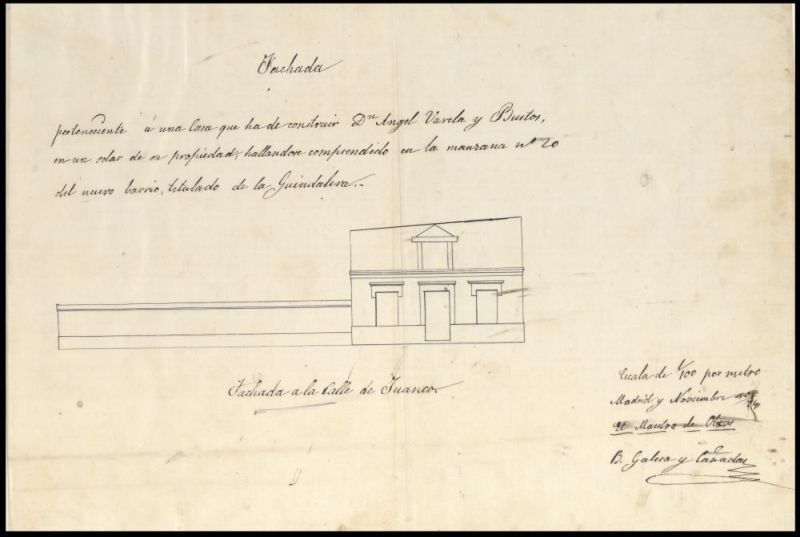 Fachada
perteneciente á una Casa que ha de construir Dn Angel Varela y Bustos,
en un solar de su propiedad, hallandose comprendido en la manzana nº 20
del nuevo barrio, titulado de la Guindalera.-
Fachada a la Calle de Juanco.
Escala de 1/100 por metro
Madrid y Noviembre
El Maestro de Obras
B. Galera y Cañadas